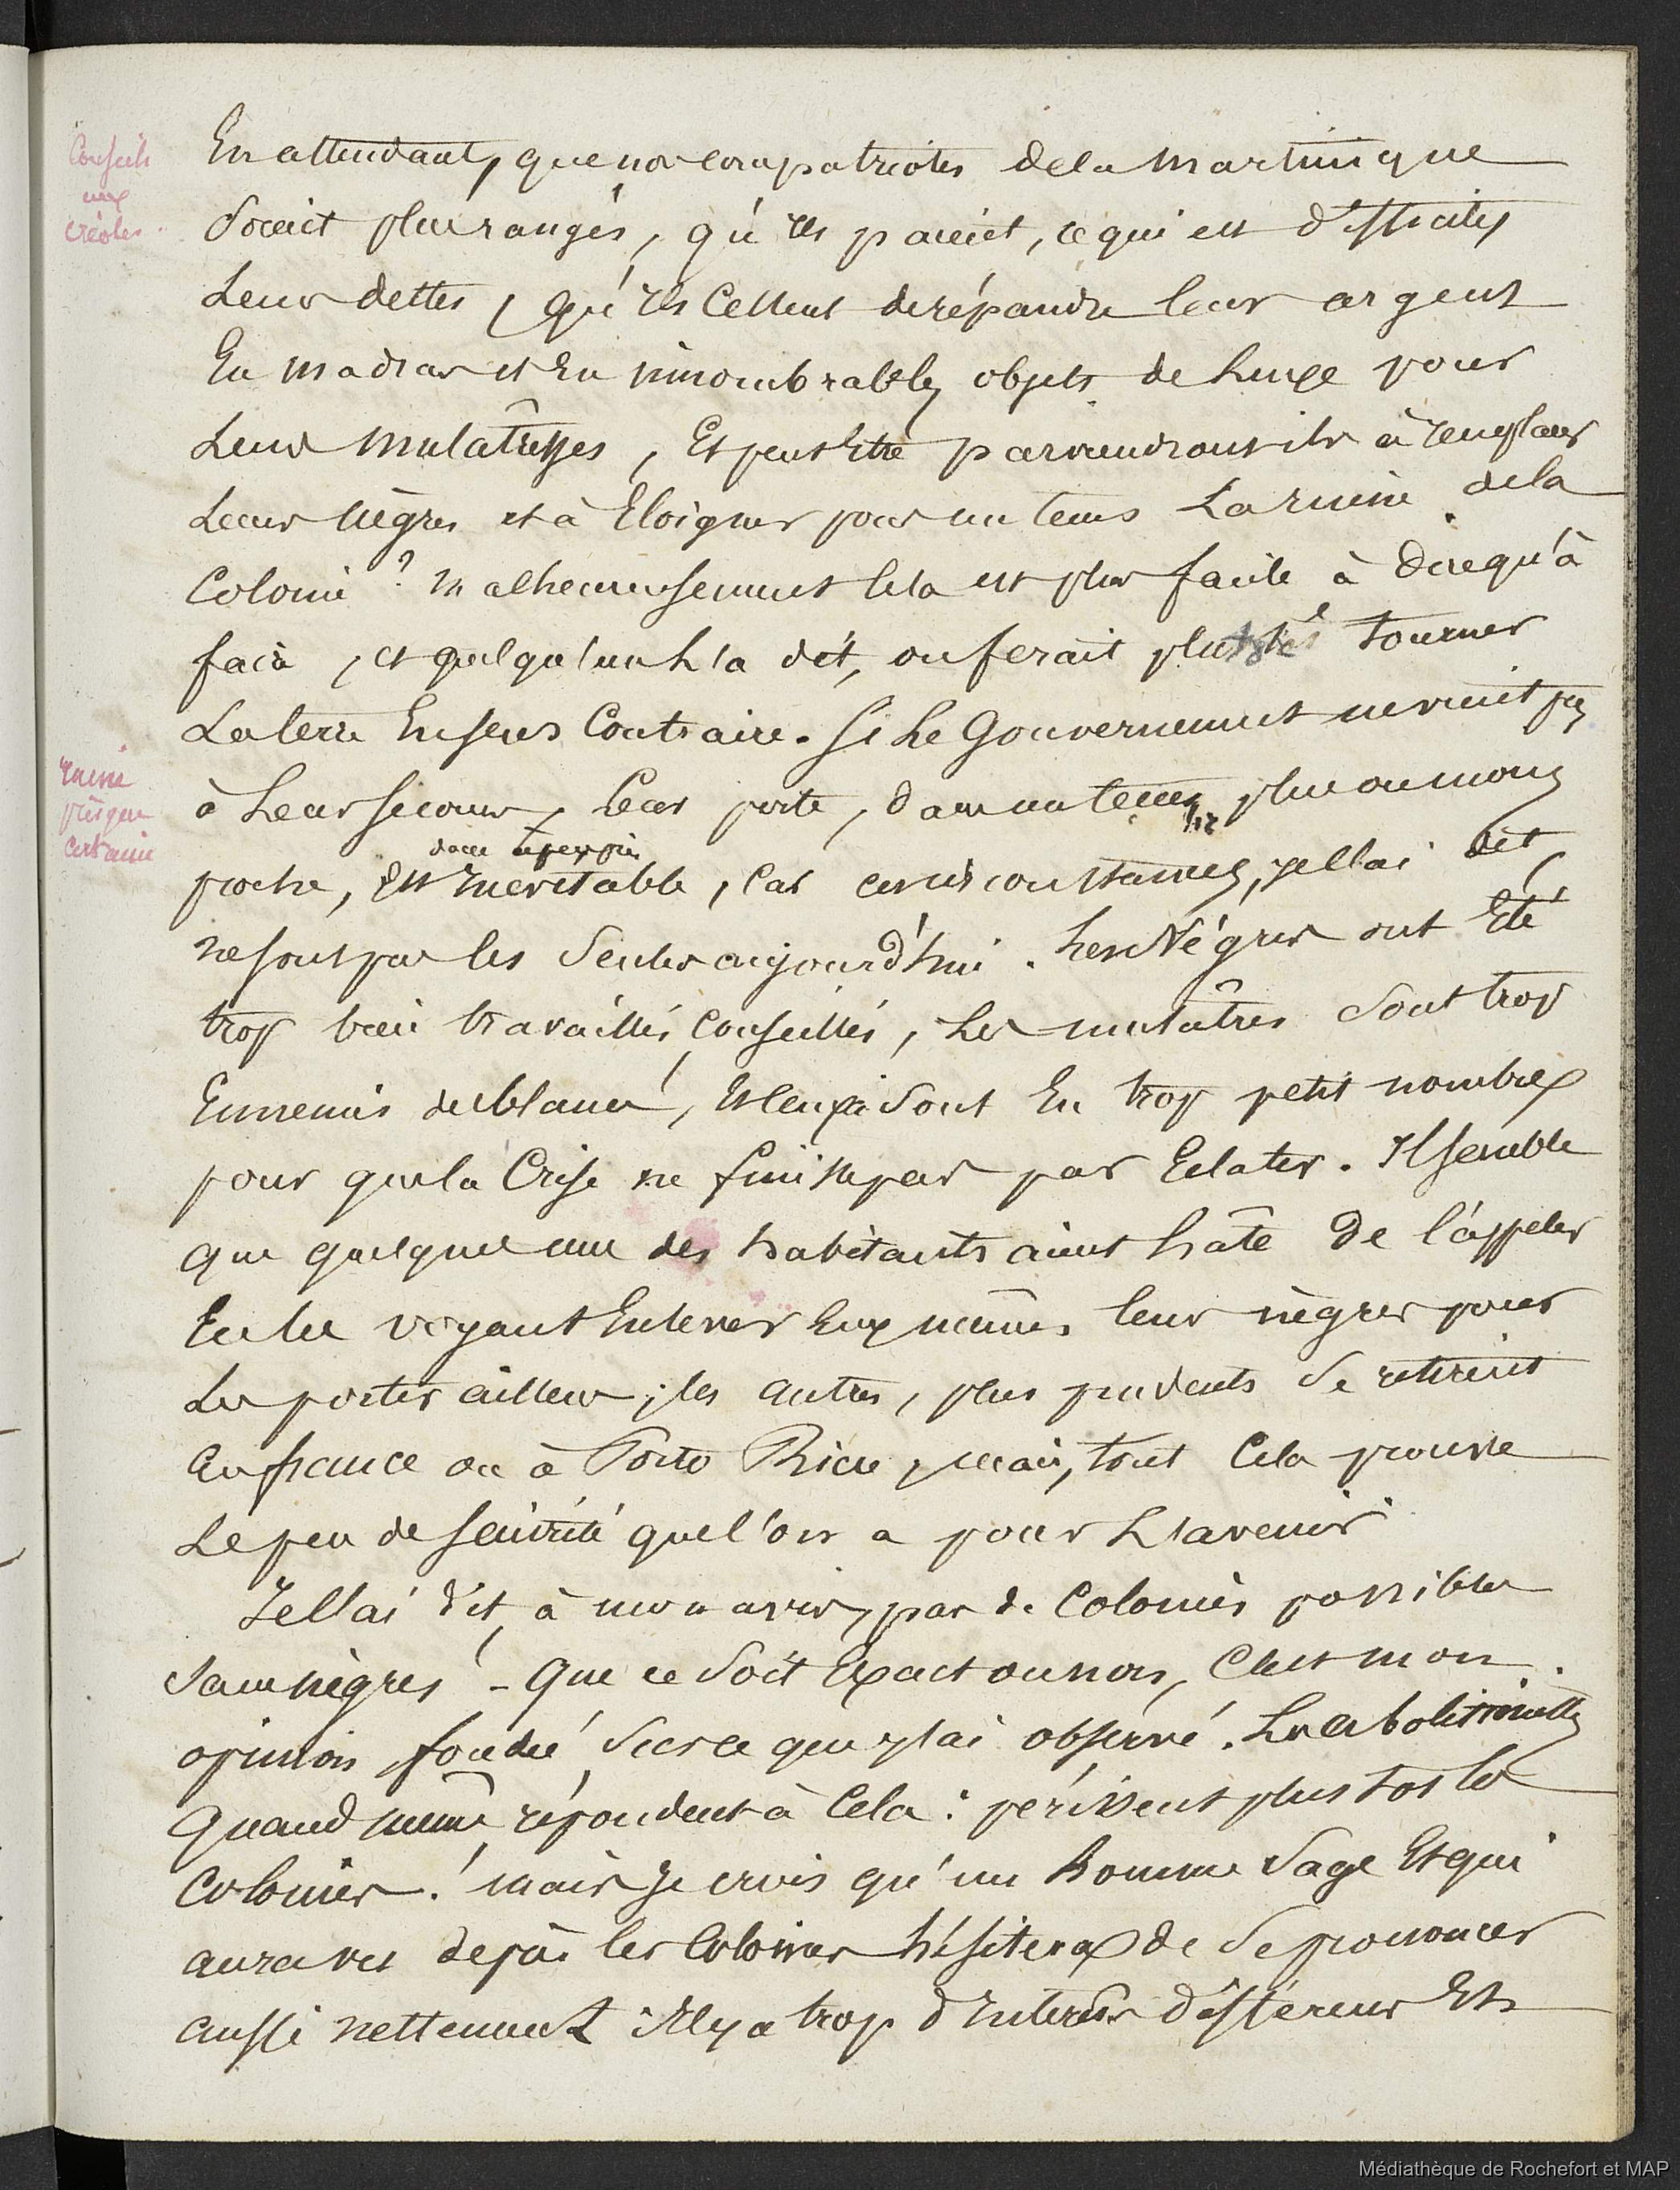 Conseils
aux
créoles.
En attendant, que nos compatriotes de la Martinique
soient plus rangés, qu'ils paient, ce qui est difficile,
Leurs dettes, qu'ils Cessent de répandre leur argent
En madras et En innombrables objets de Luxe pour
Leurs Mulâtresses, Et peut être parviendront ils à remplacer
Leurs Nègres et à Eloigner pour un tems La ruine de la
Colonie ? Malheureusement Cela est plus facile à dire qu'à
faire, et quelqu'un L'a dit, on ferait plustôt tourner
La terre En sens Contraire. Si Le Gouvernement ne vient pas
Ruine
presque
certaine
à Leur secours, Leur perte, dans un tems plus ou moins
proche, Est Inévitable, Car ces circonstances, je l'ai dit,
ne sont pas les Seules aujourd'hui. Les Nègres ont Eté
trop bien travaillés, Conseillés, Les mulâtres sont trop
Ennemis des blancs, Et ceux ci sont En trop petit nombre
pour que la Crise ne finisse pas par Eclater. Il semble
que quelques uns des habitants aient hâte de l'appeler
En les voyant Enlever Eux mêmes leurs nègres pour
Les porter ailleurs ; les autres, plus prudents se retirent
En france ou à Porto Rico, mais, tout Cela prouve
Le peu de sécurité que l'on a pour L'avenir.
Je l'ai dit, à mon avis, pas de Colonies possibles
Sans nègres ! - Que ce soit Exact ou non, C'est mon
opinion, fondée sur ce que j'ai observé. Les abolitionistes
Quand même, répondent à Cela : périssent plus tost les
Colonies ! mais Je crois qu'un homme sage Et qui
aura vu dejà les Colonies hésitera de se prononcer
aussi nettement. Il y a trop d'Interêts différents Et
Médiathèque de Rochefort et MAP